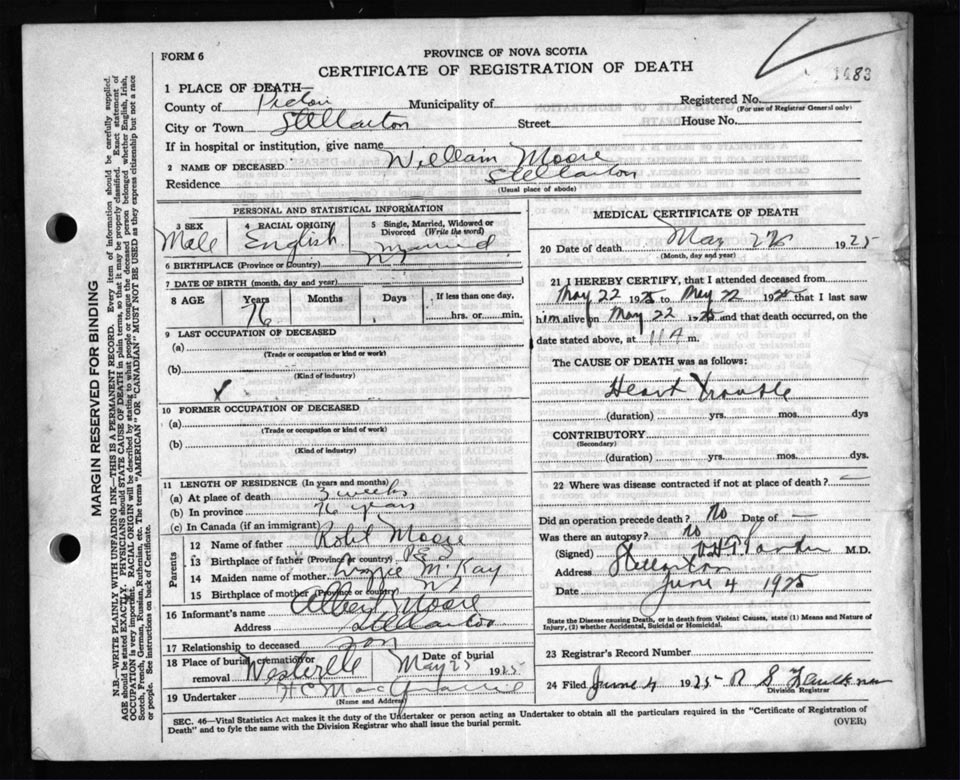 FORM 6
PROVINCE OF NOVA SCOTIA
CERTIFICATE OF REGISTRATION OF DEATH
1483
1 PLACE OF DEATH—
County of Pictou Municipality of Registered No.
(For use of Registrar General only)
City or Town Stellarton Street House No.
If in hospital or institution, give name
2 NAME OF DECEASED William Moore
Residence Stellarton
(Usual place of abode)
PERSONAL AND STATISTICAL INFORMATION
3 SEX 4 RACIAL ORIGIN 5 Single, Married, Widowed or Divorced (Write the word)
Male English Married
6 BIRTHPLACE (Province or Country) NS
7 DATE OF BIRTH (month, day and year)
8 AGE Years Months Days If less than one day,
76 hrs. or min.
9 LAST OCCUPATION OF DECEASED
(a)
(Trade or occupation or kind or work)
(b)
(Kind of industry)
10 FORMER OCCUPATION OF DECEASED
(a)
(Trade or occupation or kind or work)
(b)
(Kind of industry)
11 LENGTH OF RESIDENCE (In years and months)
(a) At place of death 3 weeks
(b) In province 76 years
(c) In Canada (if an immigrant)
Parents
12 Name of father Robt Moore
13 Birthplace of father (Province or country) P E I
14 Maiden name of mother Lizzie McKay
15 Birthplace of mother (Province or country) NS
16 Informant's name Albert Moore
Address Stellarton
17 Relationship to deceased Son
18 Place of burial, cremation or removal Date of burial May 25 1925
19 Undertaker
(Name and Address)
MEDICAL CERTIFICATE OF DEATH
20 Date of death May 22 1925
(Month, day and year)
21 I HEREBY CERTIFY, that I attended deceased from
May 22 1925 to May 22 1925 that I last saw
him alive on May 22 1925 and that death occurred, on the
date stated above, at 11 A m.
The CAUSE OF DEATH was as follows:
Heart Trouble
(duration) yrs. mos. dys
CONTRIBUTORY
(Secondary)
(duration) yrs. mos. dys.
22 Where was disease contracted if not at place of death?
Did an operation precede death? No Date of —
Was there an autopsy? no
(Signed) M.D.
Address Stellarton
Date June 4 1925
State the Disease causing Death, or in death from Violent Causes, state (1) Means and Nature of
Injury, (2) whether Accidental, Suicidal or Homicidal.
23 Registrar's Record Number
24 Filed June 4 1925 R S
Division Registrar
SEC. 46—Vital Statistics Act makes it the duty of the Undertaker or person acting as Undertaker to obtain all the particulars required in the "Certificate of Registration of
Death" and to fyle the same with the Division Registrar who shall issue the burial permit.
(OVER)
MARGIN RESERVED FOR BINDING
N.B.—WRITE PLAINLY WITH UNFADING INK—THIS IS A PERMANENT RECORD. Every item of information should be carefully supplied.
AGE should be stated EXACTLY. PHYSICIANS should STATE CAUSE OF DEATH in plain terms, so that it may be properly classified. Exact statement of
OCCUPATION is very important. RACIAL ORIGIN will be described by stating to what people or tongue the deceased person belonged whether English, Irish,
Scotch, French, German, Russian, Ruthenian, etc. The terms "AMERICAN" OR "CANADIAN" MUST NOT BE USED as they express citizenship but not a race
or people. See instructions on back of Certificate.